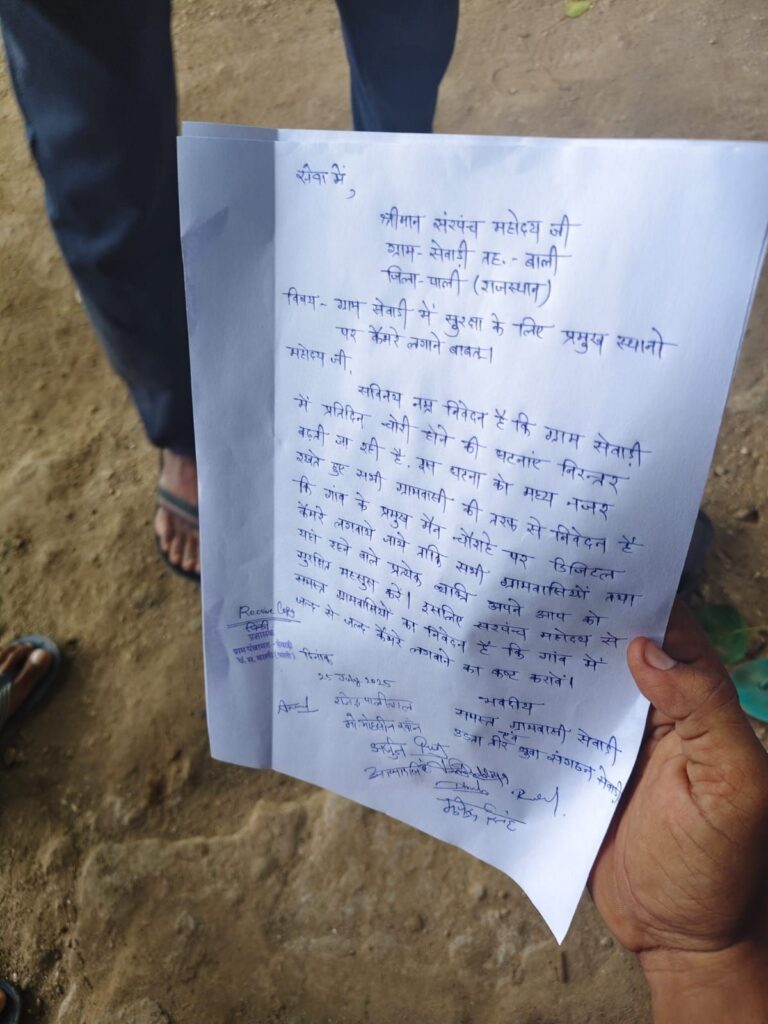 सेवा में,
श्रीमान सरंपच महोदय जी
ग्राम- सेवाड़ी तह.- बाली
जिला- पाली (राजस्थान)
विषय- ग्राम सेवाड़ी में सुरक्षा के लिए प्रमुख स्थानो
पर कैमरे लगाने बाबत।
महोदय जी,
सविनय नम्र निवेदन है कि ग्राम सेवाड़ी
में प्रतिदिन चोरी होने की घटनाएं निरन्तर
बढ़ती जा रही है. इस घटना को मध्य नजर
रखते हुए सभी ग्रामवासी की तरफ से निवेदन है
कि गांव के प्रमुख मैन चौराहे पर डिजिटल
कैमरे लगवाये जाये ताकि सभी ग्रामवासियों तथा
यहां रहने वाले प्रत्येक व्यक्ति अपने आप को
सुरक्षित महसुस करें। इसलिए सरपंच महोदय से
समस्त ग्रामवासियों का निवेदन है कि गांव में
जल्द से जल्द कैमरे लगवाने का कष्ट करावें।
Receive Copy
प्रशासक
ग्राम पंचायत - सेवाड़ी
पं. स. बाली (पाली)
दिनांक
25 July 2025
भवदीय
समस्त ग्रामवासी सेवाड़ी
एवं
वीर युवा संगठन सेवाड़ी
अर्जुन